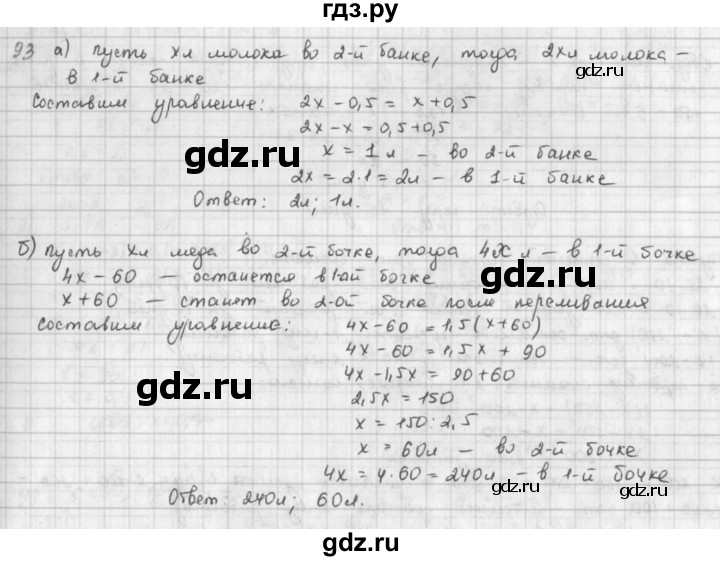 гдз.ру
93 а) пусть xл молока во 2-й банке, тогда 2xл молока –
в 1-й банке
Составим уравнение: 2x – 0,5 = x + 0,5
2x – x = 0,5 + 0,5
x = 1 л – во 2-й банке
gdz.ru
gdz.ru
2x = 2·1 = 2л – в 1-й банке
Ответ: 2л; 1л.
б) пусть xл меда во 2-й бочке, тогда 4x л – в 1-й бочке
4x – 60 – останется в 1ой бочке
x + 60 – станет во 2-ой бочке после переливания
Составим уравнение: 4x – 60 = 1,5(x + 60)
4x – 60 = 1,5x + 90
4x – 1,5x = 90 + 60
gdz.ru
gdz.ru
2,5x = 150
x = 150 : 2,5
x = 60л – во 2-й бочке
4x = 4·60 = 240л – в 1-й бочке
Ответ: 240л; 60л.
gdz.ru